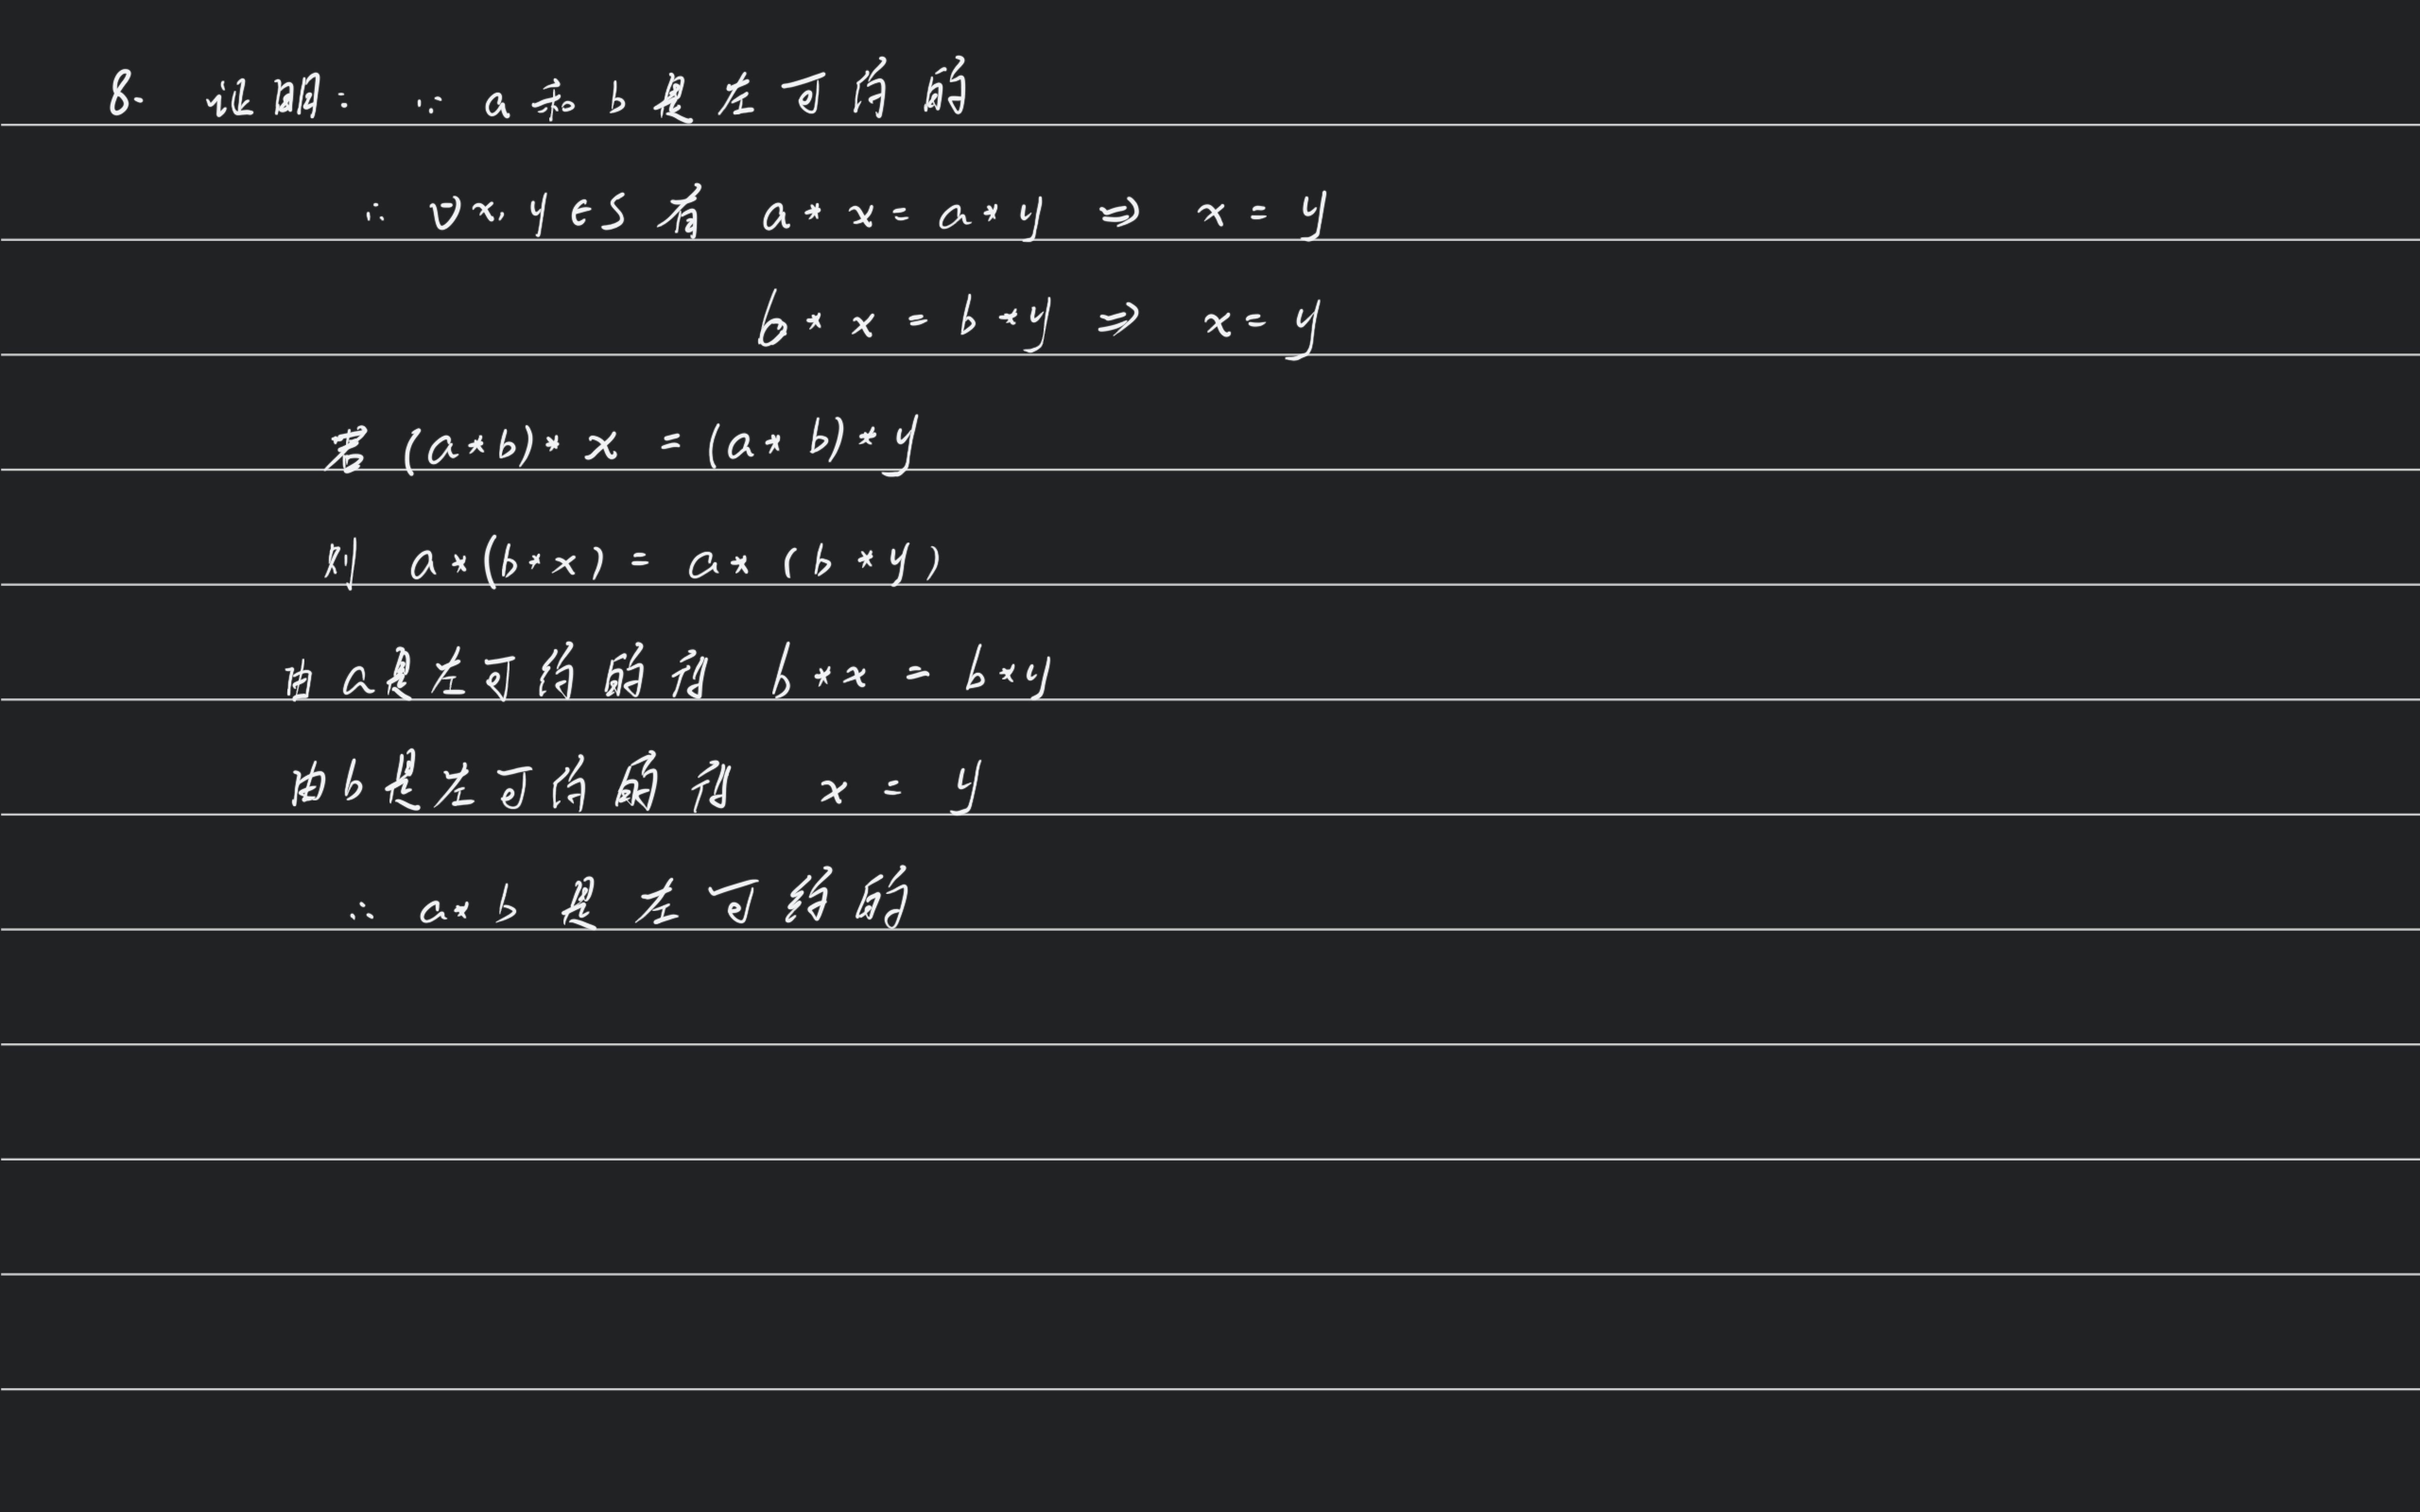 8. 证明: ∵ a和b是左可约的
∴ ∀x, y∈S 有 a*x=a*y ⇒ x=y
b*x=b*y ⇒ x=y
若 (a*b)*x=(a*b)*y
则 a*(b*x)=a*(b*y)
由a是左可约的得 b*x=b*y
由b是左可约的得 x=y
∴ a*b 是左可约的